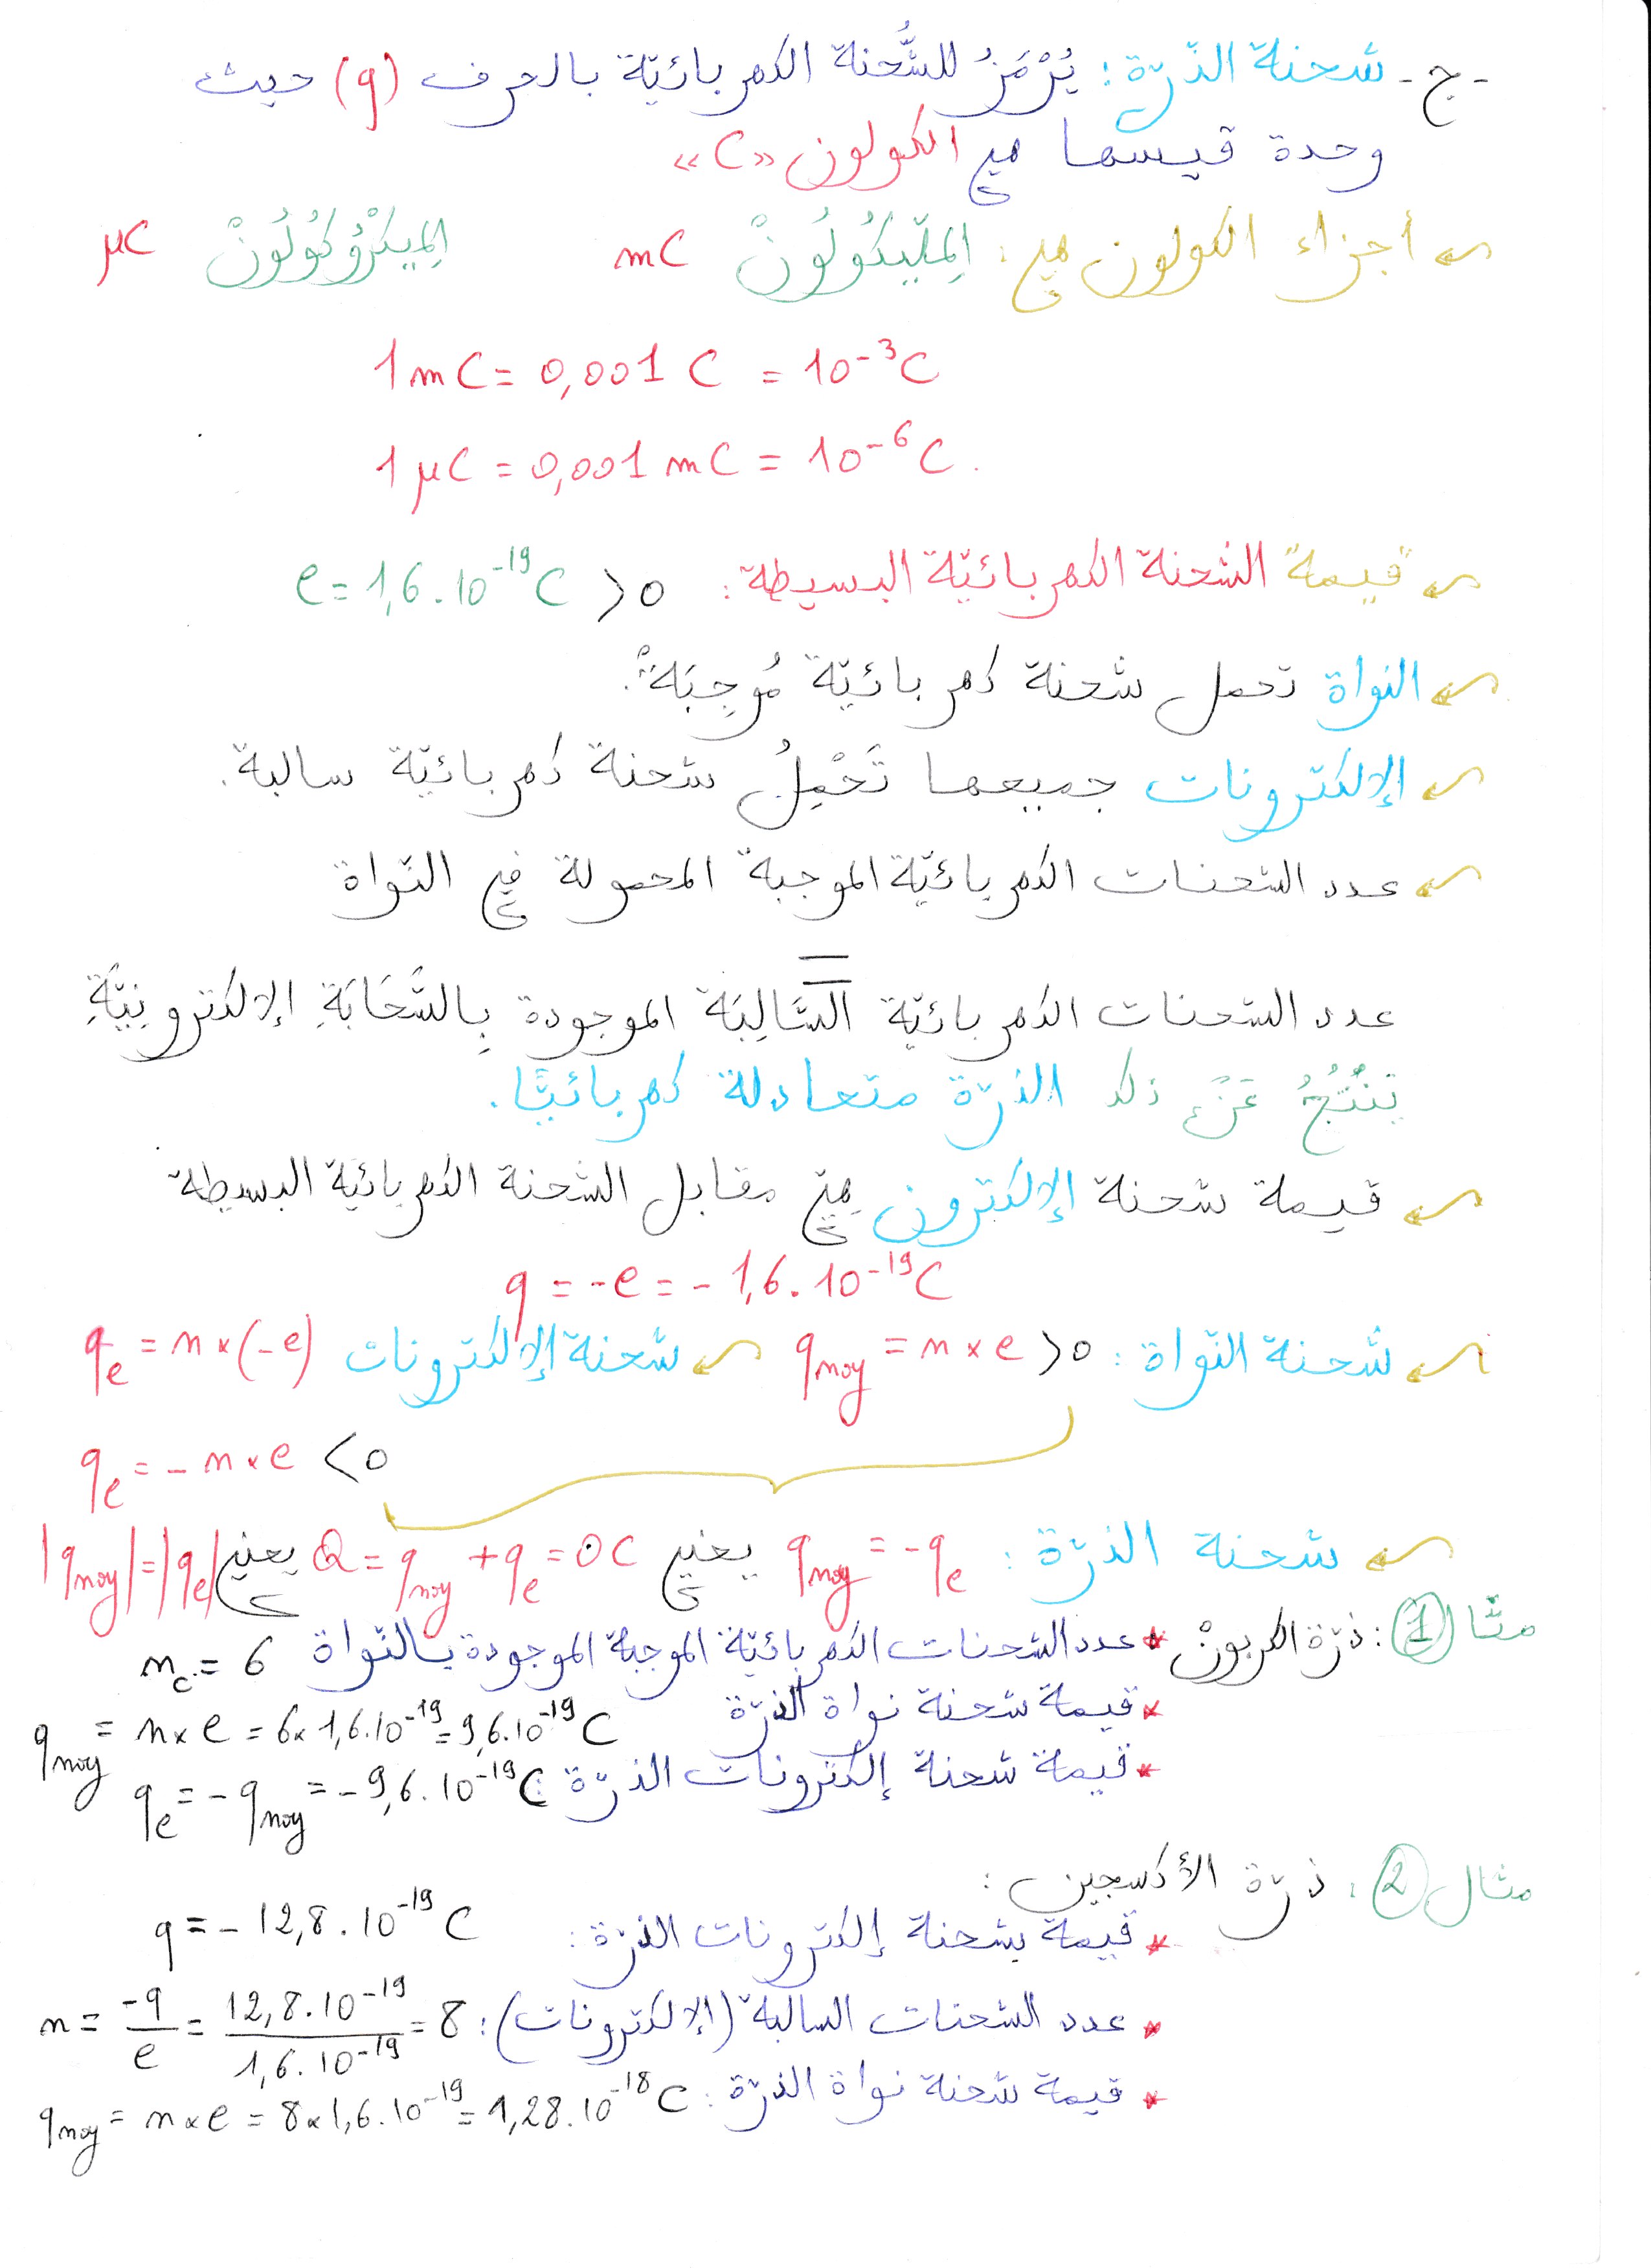 -ج- شحنة الذّرّة: يُرْمَزُ للشُّحنة الكهربائيّة بالحرف (q) حيث
وحدة قيسها هي الكولون «C»
أجزاء الكولون هي: المِلّيكُولُونْ mC المِيكْرُوكُولُونْ μC
1 mC = 0,001 C = 10⁻³ C
1 μC = 0,001 mC = 10⁻⁶ C.
قيمة الشحنة الكهربائيّة البسيطة: e = 1,6.10⁻¹⁹ C > 0
النواة تحمل شحنة كهربائيّة مُوجِبَةً.
الإلكترونات جميعها تَحْمِلُ شحنة كهربائيّة سالبة.
عدد الشحنات الكهربائيّة الموجبة المحمولة في النّواة
=
عدد الشحنات الكهربائيّة السَّالِبَة الموجودة بِالسَّحَابَةِ الإلكترونِيَّةِ
يَنْتُجُ عَنْ ذلك الذرّة متعادلة كهربائيًّا.
قيمة شحنة الإلكترون هيَ مقابل الشحنة الكهربائيّة البسيطة
q = -e = -1,6.10⁻¹⁹ C
شحنة النّواة: q_noy = n × e > 0 شحنة الإلكترونات q_e = n × (-e)
q_e = -n × e < 0
شحنة الذرّة: q_noy = -q_e يعني Q = q_noy + q_e = 0 C يعني |q_noy| = |q_e|
مثال 1: ذرّة الكربونْ * عدد الشحنات الكهربائيّة الموجبة الموجودة بالنّواة n_c = 6
* قيمة شحنة نواة الذرّة q_noy = n × e = 6 × 1,6.10⁻¹⁹ = 9,6.10⁻¹⁹ C
* قيمة شحنة إلكترونات الذرّة: q_e = -q_noy = -9,6.10⁻¹⁹ C
مثال 2: ذرّة الأكسجين:
* قيمة شحنة إلكترونات الذرّة: q = -12,8.10⁻¹⁹ C
* عدد الشحنات السالبة (الإلكترونات): n = -q/e = 12,8.10⁻¹⁹/1,6.10⁻¹⁹ = 8
* قيمة شحنة نواة الذرّة: q_noy = n × e = 8 × 1,6.10⁻¹⁹ = 1,28.10⁻¹⁸ C